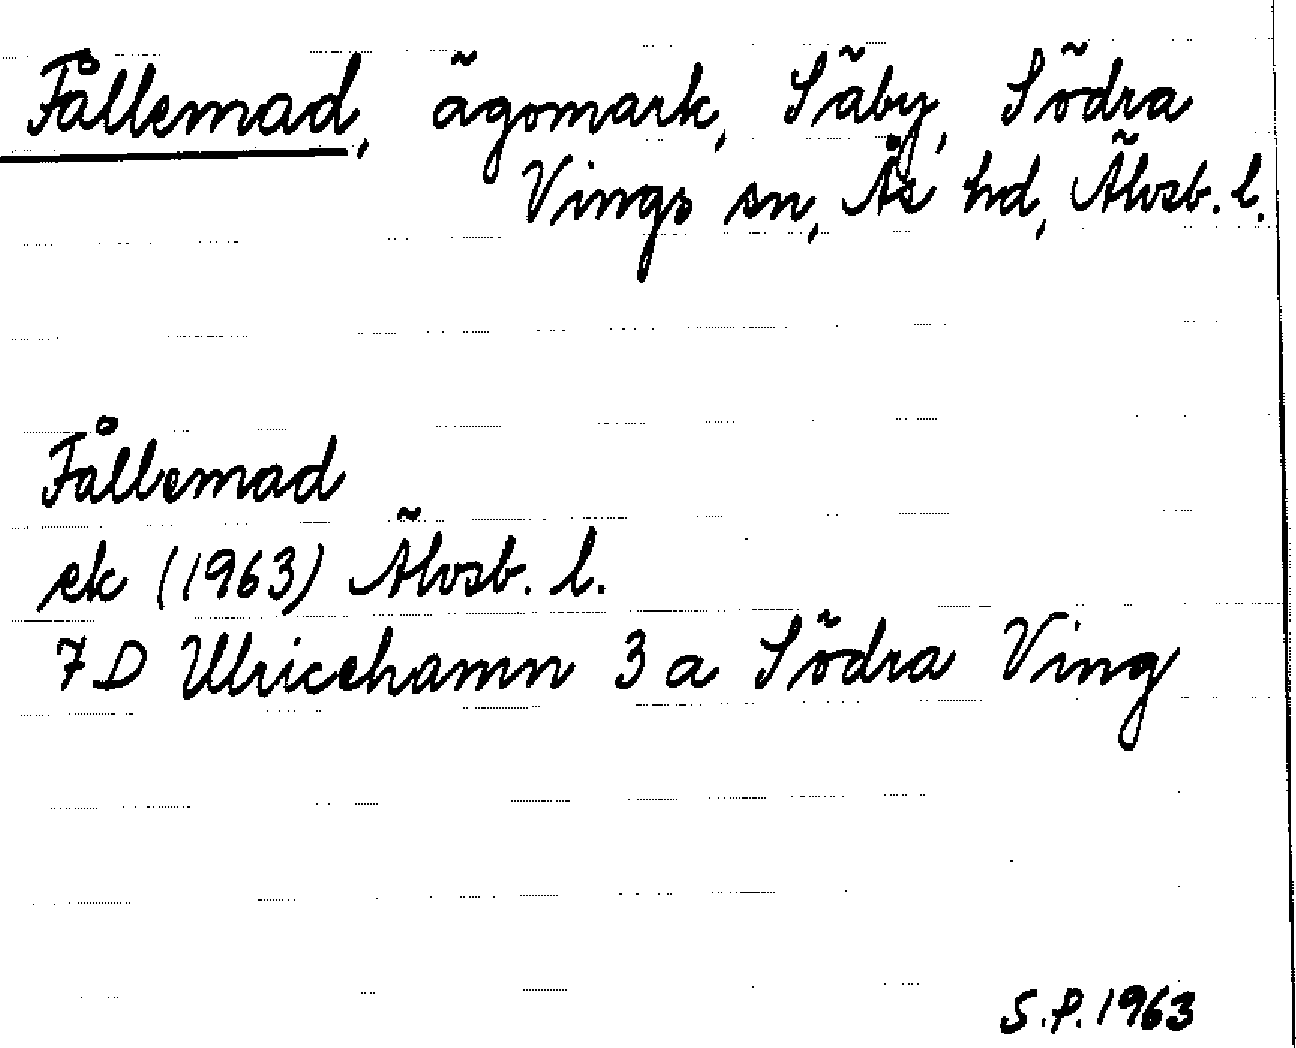 Fållemad, ägomark, Säby, Södra
Vings sn, Ås hd, Älvsb. l.
Fållemad
ek (1963) Älvsb. l.
7 D Ulricehamn 3 a Södra Ving
S.P. 1963